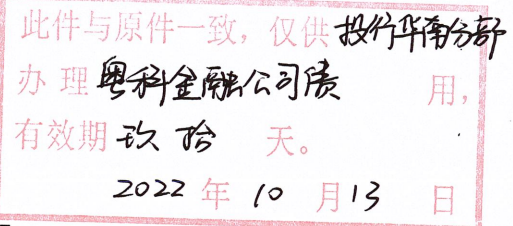 此件与原件一致，仅供投行华南分部
办理粤科金融公司债用，
有效期玖拾天。
2022年10月13日